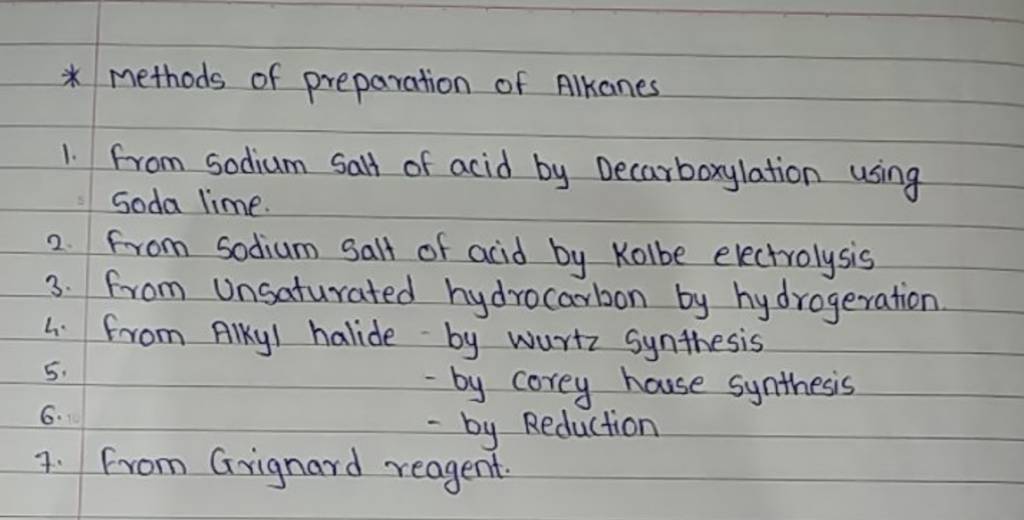 * Methods of preparation of Alkanes
1. from sodium salt of acid by Decarboxylation using
soda lime.
2. from sodium salt of acid by Kolbe electrolysis
3. from Unsaturated hydrocarbon by hydrogeration.
4. from Alkyl halide - by wurtz synthesis
5. - by corey house synthesis
6. - by Reduction
7. from Grignard reagent.